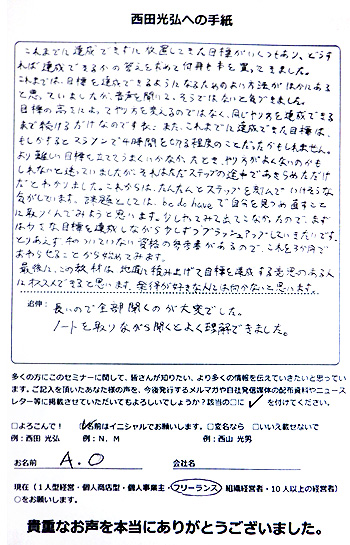 西田光弘への手紙
これまでに達成できずに放置してきた目標がいくつもあり、どうす
れば達成できるかの答えを求めて何冊も本を買ってきました。
これまでは、目標を達成できるようになるためのよい方法がほかにある
と思っていましたが、音声を聞いて、そうではないと気づきました。
目標の高さによってやり方を変えるのではなく、同じやり方を達成できる
まで続けるだけなのですね。また、これまでに達成できた目標は、
もしかするとマラソンで4時間を切る程度のことだったかもしれません。
より難しい目標を立ててうまくいかなかったとき、やり方がよくないのかも
しれないと迷っていましたが、それはただステップの途中であきらめただけ
だとわかりました。これからは、たんたんとステップを刻んでいけそうな
気がしています。課題としては、be do haveで自分を見つめ直すこと
に取りくんでみようと思います。少しやってみて出てこなかったので、まず
は小さな目標を達成しながら少しずつブラッシュアップしていきたいです。
とりあえず、手のついていない資格の参考書があるので、これを3か月で
おわらせることから始めてみます。
最後に、この教材は、地道に積み上げて目標を達成する意思のある人
にオススメできると思います。楽得が好きな人には向かないと思います。
追伸:
長いので全部聞くのが大変でした。
ノートを取りながら聞くとよく理解できました。
多くの方にこのセミナーに関して、皆さんが知りたい、より多くの情報を伝えていきたいと思ってい
ます。ご記入を頂いたあなた様の声を、今後発行するメルマガや自社発信媒体の配布資料やニュース
レター等に掲載させていただいてもよろしいでしょうか?該当の□に✓を付けてください。
□よろこんで! ☑名前はイニシャルでお願いします。□変名なら □いいえ載せないで
例:西田 光弘 例:N.M 例:西山 光男
お名前 A.O 会社名
現在(1人型経営・個人商店型・個人事業主・フリーランス 組織経営者・10人以上の経営者)
○をお願いします。
貴重なお声を本当にありがとうございました。